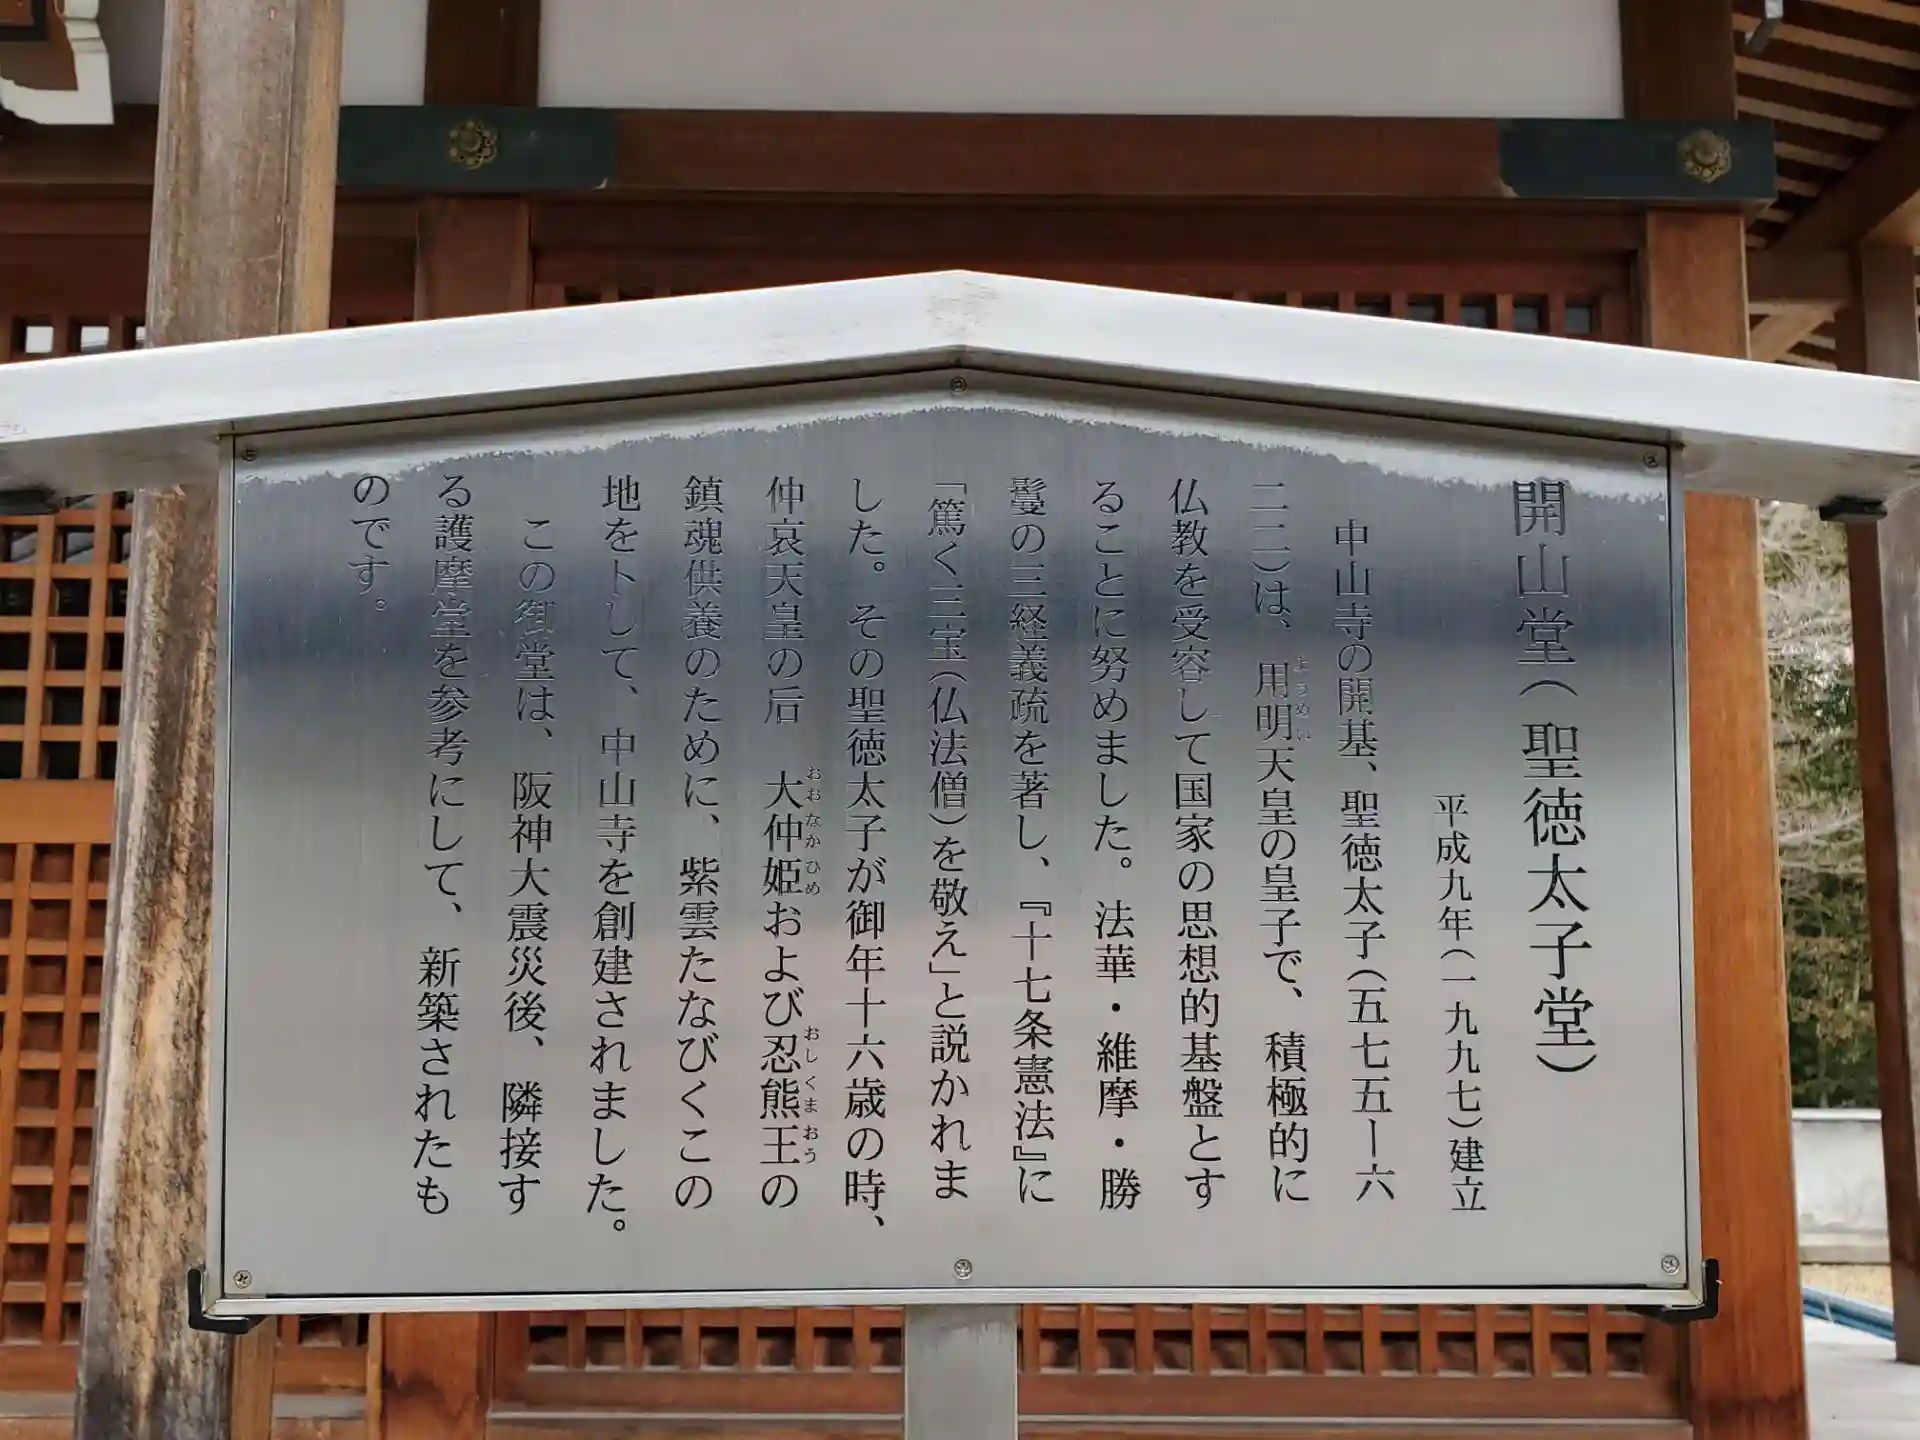 開山堂(聖徳太子堂)
平成九年(一九九七)建立
中山寺の開基、聖徳太子(五七五ー六
二二)は、用明天皇の皇子で、積極的に
ようめい
仏教を受容して国家の思想的基盤とす
ることに努めました。法華・維摩・勝
鬘の三経義疏を著し、『十七条憲法』に
「篤く三宝(仏法僧)を敬え」と説かれま
した。その聖徳太子が御年十六歳の時、
仲哀天皇の后 大仲姫および忍熊王の
おおなかひめ おしくまおう
鎮魂供養のために、紫雲たなびくこの
地を卜して、中山寺を創建されました。
この御堂は、阪神大震災後、隣接す
る護摩堂を参考にして、新築されたも
のです。